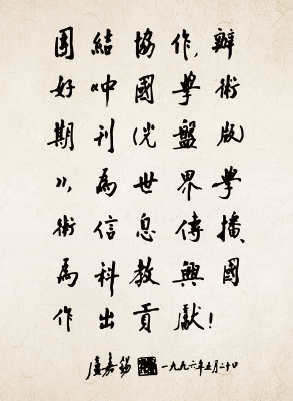 團結協作,辦
好《中國學術
期刊(光盤版)
》,為世界學
術信息傳播、
為科教興國
作出貢獻!
盧嘉錫 一九九六年五月二十日